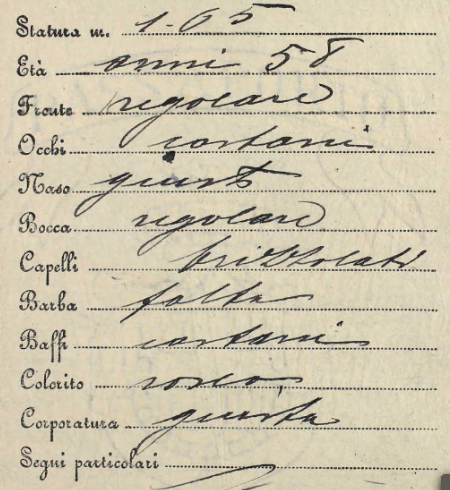 Statura m. 1-65
Età anni 58
Fronte regolare
Occhi castani
Naso giusto
Bocca regolare
Capelli brizzolati
Barba folta
Baffi castani
Colorito roseo
Corporatura giusta
Segni particolari